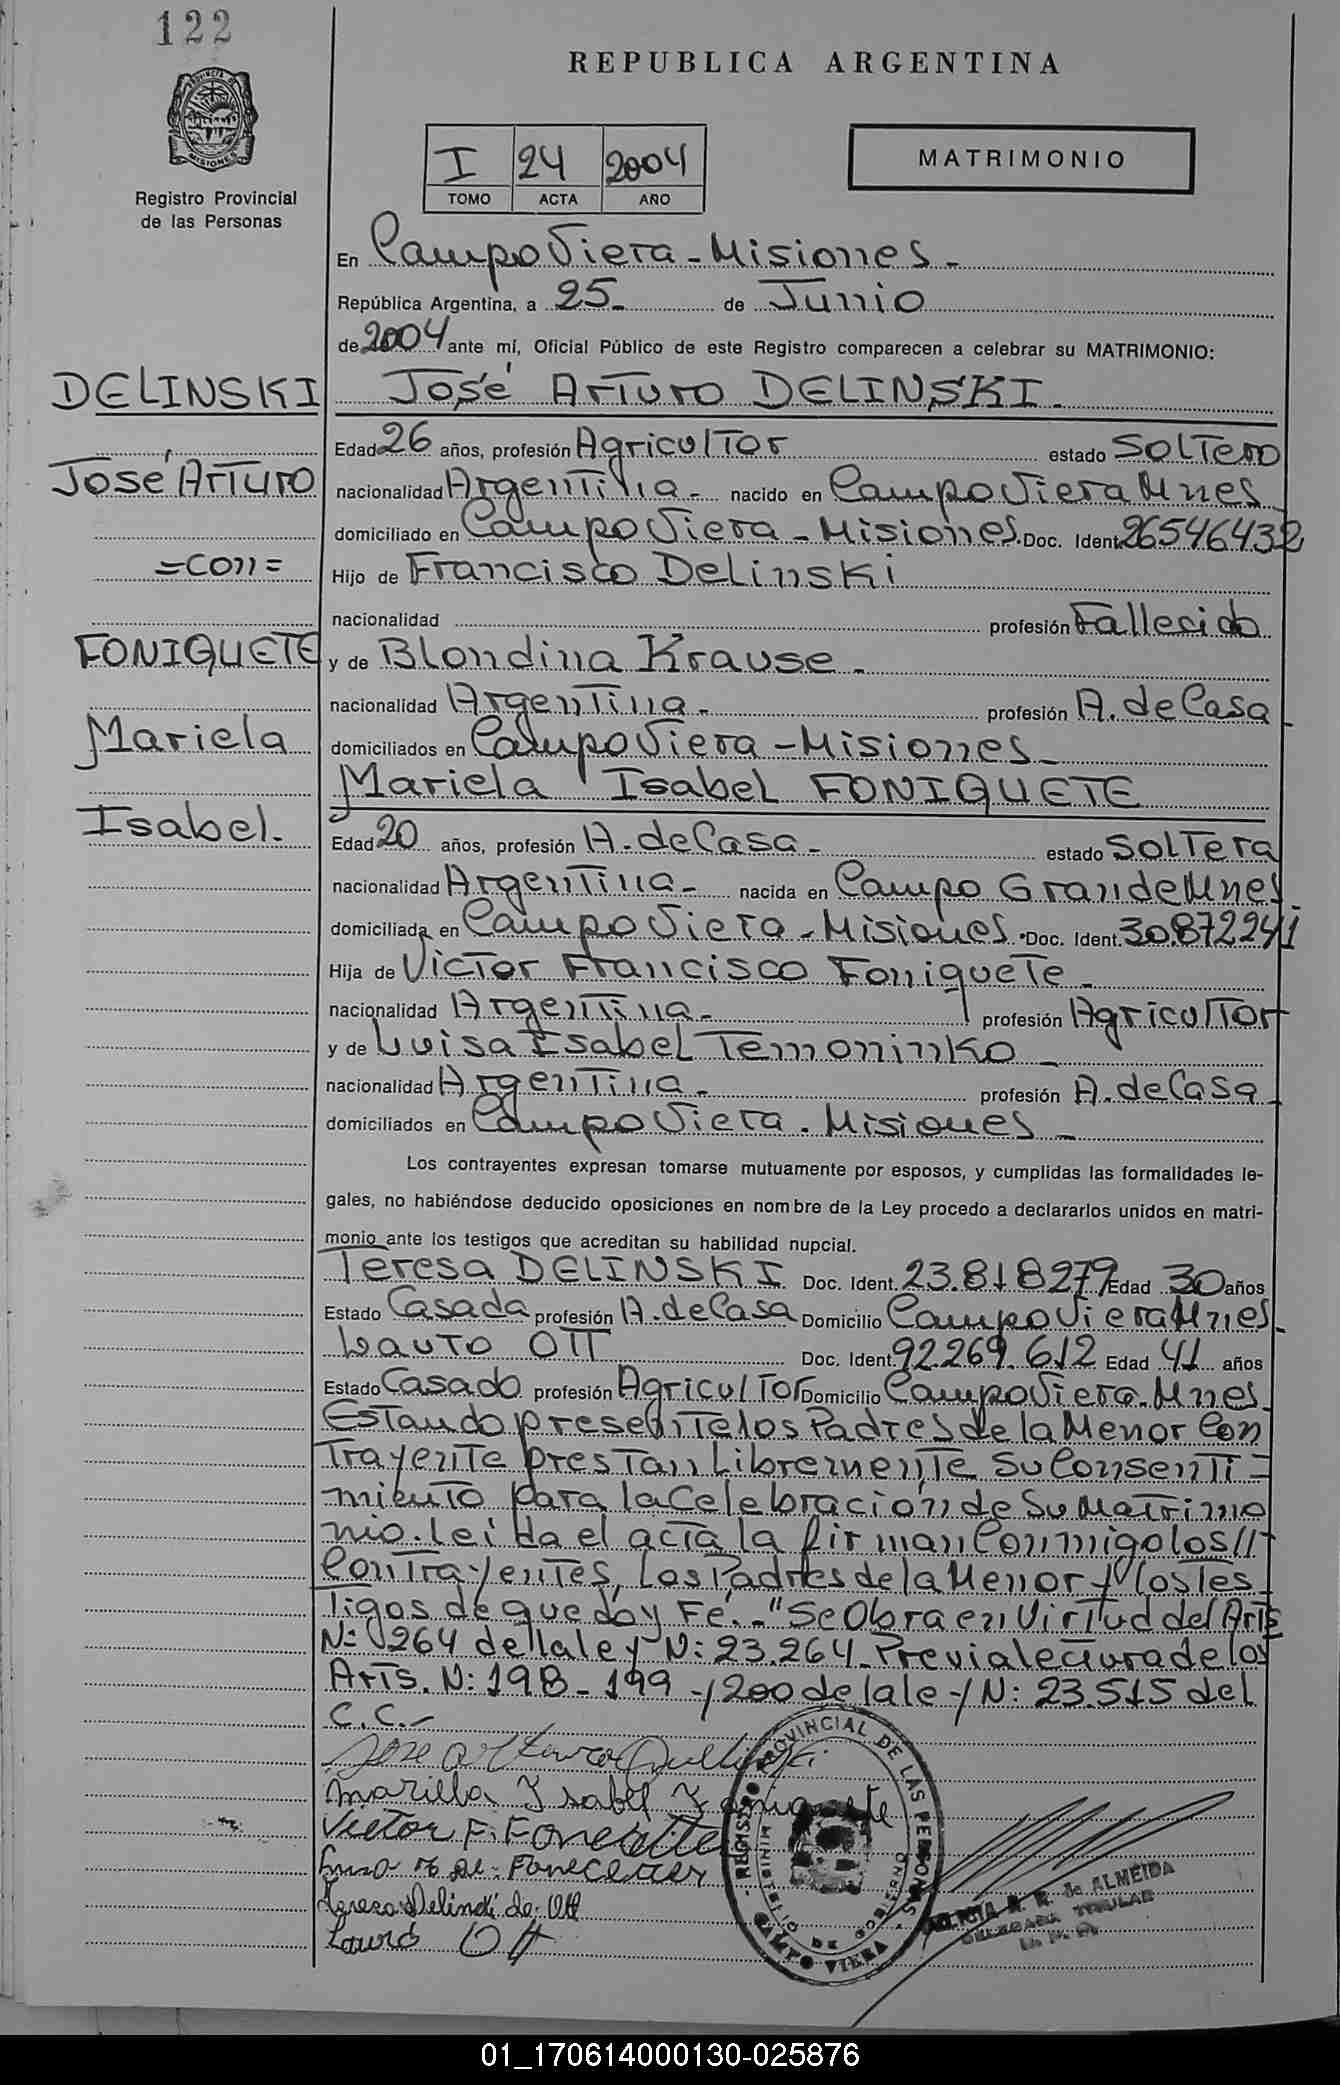 122
REPUBLICA ARGENTINA
PROVINCIA DE MISIONES
Registro Provincial
de las Personas
I 24 2004
TOMO ACTA AÑO
MATRIMONIO
En Campo Viera - Misiones -
República Argentina, a 25- de Junio
de 2004 ante mí, Oficial Público de este Registro comparecen a celebrar su MATRIMONIO:
DELINSKI José Arturo DELINSKI.
Edad 26 años, profesión Agricultor estado Soltero
José Arturo nacionalidad Argentina - nacido en Campo Viera Mnes
domiciliado en Campo Viera - Misiones. Doc. Ident. 26546432
=con= Hijo de Francisco Delinski
nacionalidad profesión Fallecido
FONIQUETE y de Blondina Krause -
nacionalidad Argentina - profesión A. de Casa -
Mariela domiciliados en Campo Viera - Misiones -
Mariela Isabel FONIQUETE
Isabel. Edad 20 años, profesión A. de Casa - estado Soltera
nacionalidad Argentina - nacida en Campo Grande Mnes.
domiciliada en Campo Viera - Misiones. Doc. Ident. 30.872241
Hija de Victor Francisco Foniquete -
nacionalidad Argentina - profesión Agricultor
y de Luisa Isabel Temoninko -
nacionalidad Argentina - profesión A. de Casa -
domiciliados en Campo Viera. Misiones -
Los contrayentes expresan tomarse mutuamente por esposos, y cumplidas las formalidades le-
gales, no habiéndose deducido oposiciones en nombre de la Ley procedo a declararlos unidos en matri-
monio ante los testigos que acreditan su habilidad nupcial.
Teresa DELINSKI Doc. Ident. 23.818279 Edad 30 años
Estado Casada profesión A. de Casa Domicilio Campo Viera Mnes.
Lauto OTT Doc. Ident. 92.269.612 Edad 41 años
Estado Casado profesión Agricultor Domicilio Campo Viera. Mnes.
Estando presente los Padres de la Menor Con
Trayente prestan Libremente Su Consenti=
miento para la Celebración de Su Matrimo
nio. Leída el acta la firman Conmigo los //
Contrayentes, Los Padres de la Menor y los Tes
Tigos de que doy Fé.- "Se Obra en Virtud del Arts
Nº 264 de la ley Nº: 23.264. Previa lectura de los
Arts. Nº: 198 - 199 - y 200 de la ley Nº: 23.515 del
C.C.-
José Arturo Delinski
Mariela Isabel Foniquete
Victor F.
Teresa Delinski de Ott
Lauro Ott
REGISTRO PROVINCIAL DE LAS PERSONAS
MINISTERIO DE GOBIERNO
CAMPO VIERA
de ALMEIDA
DELEGADA TITULAR
01_170614000130-025876